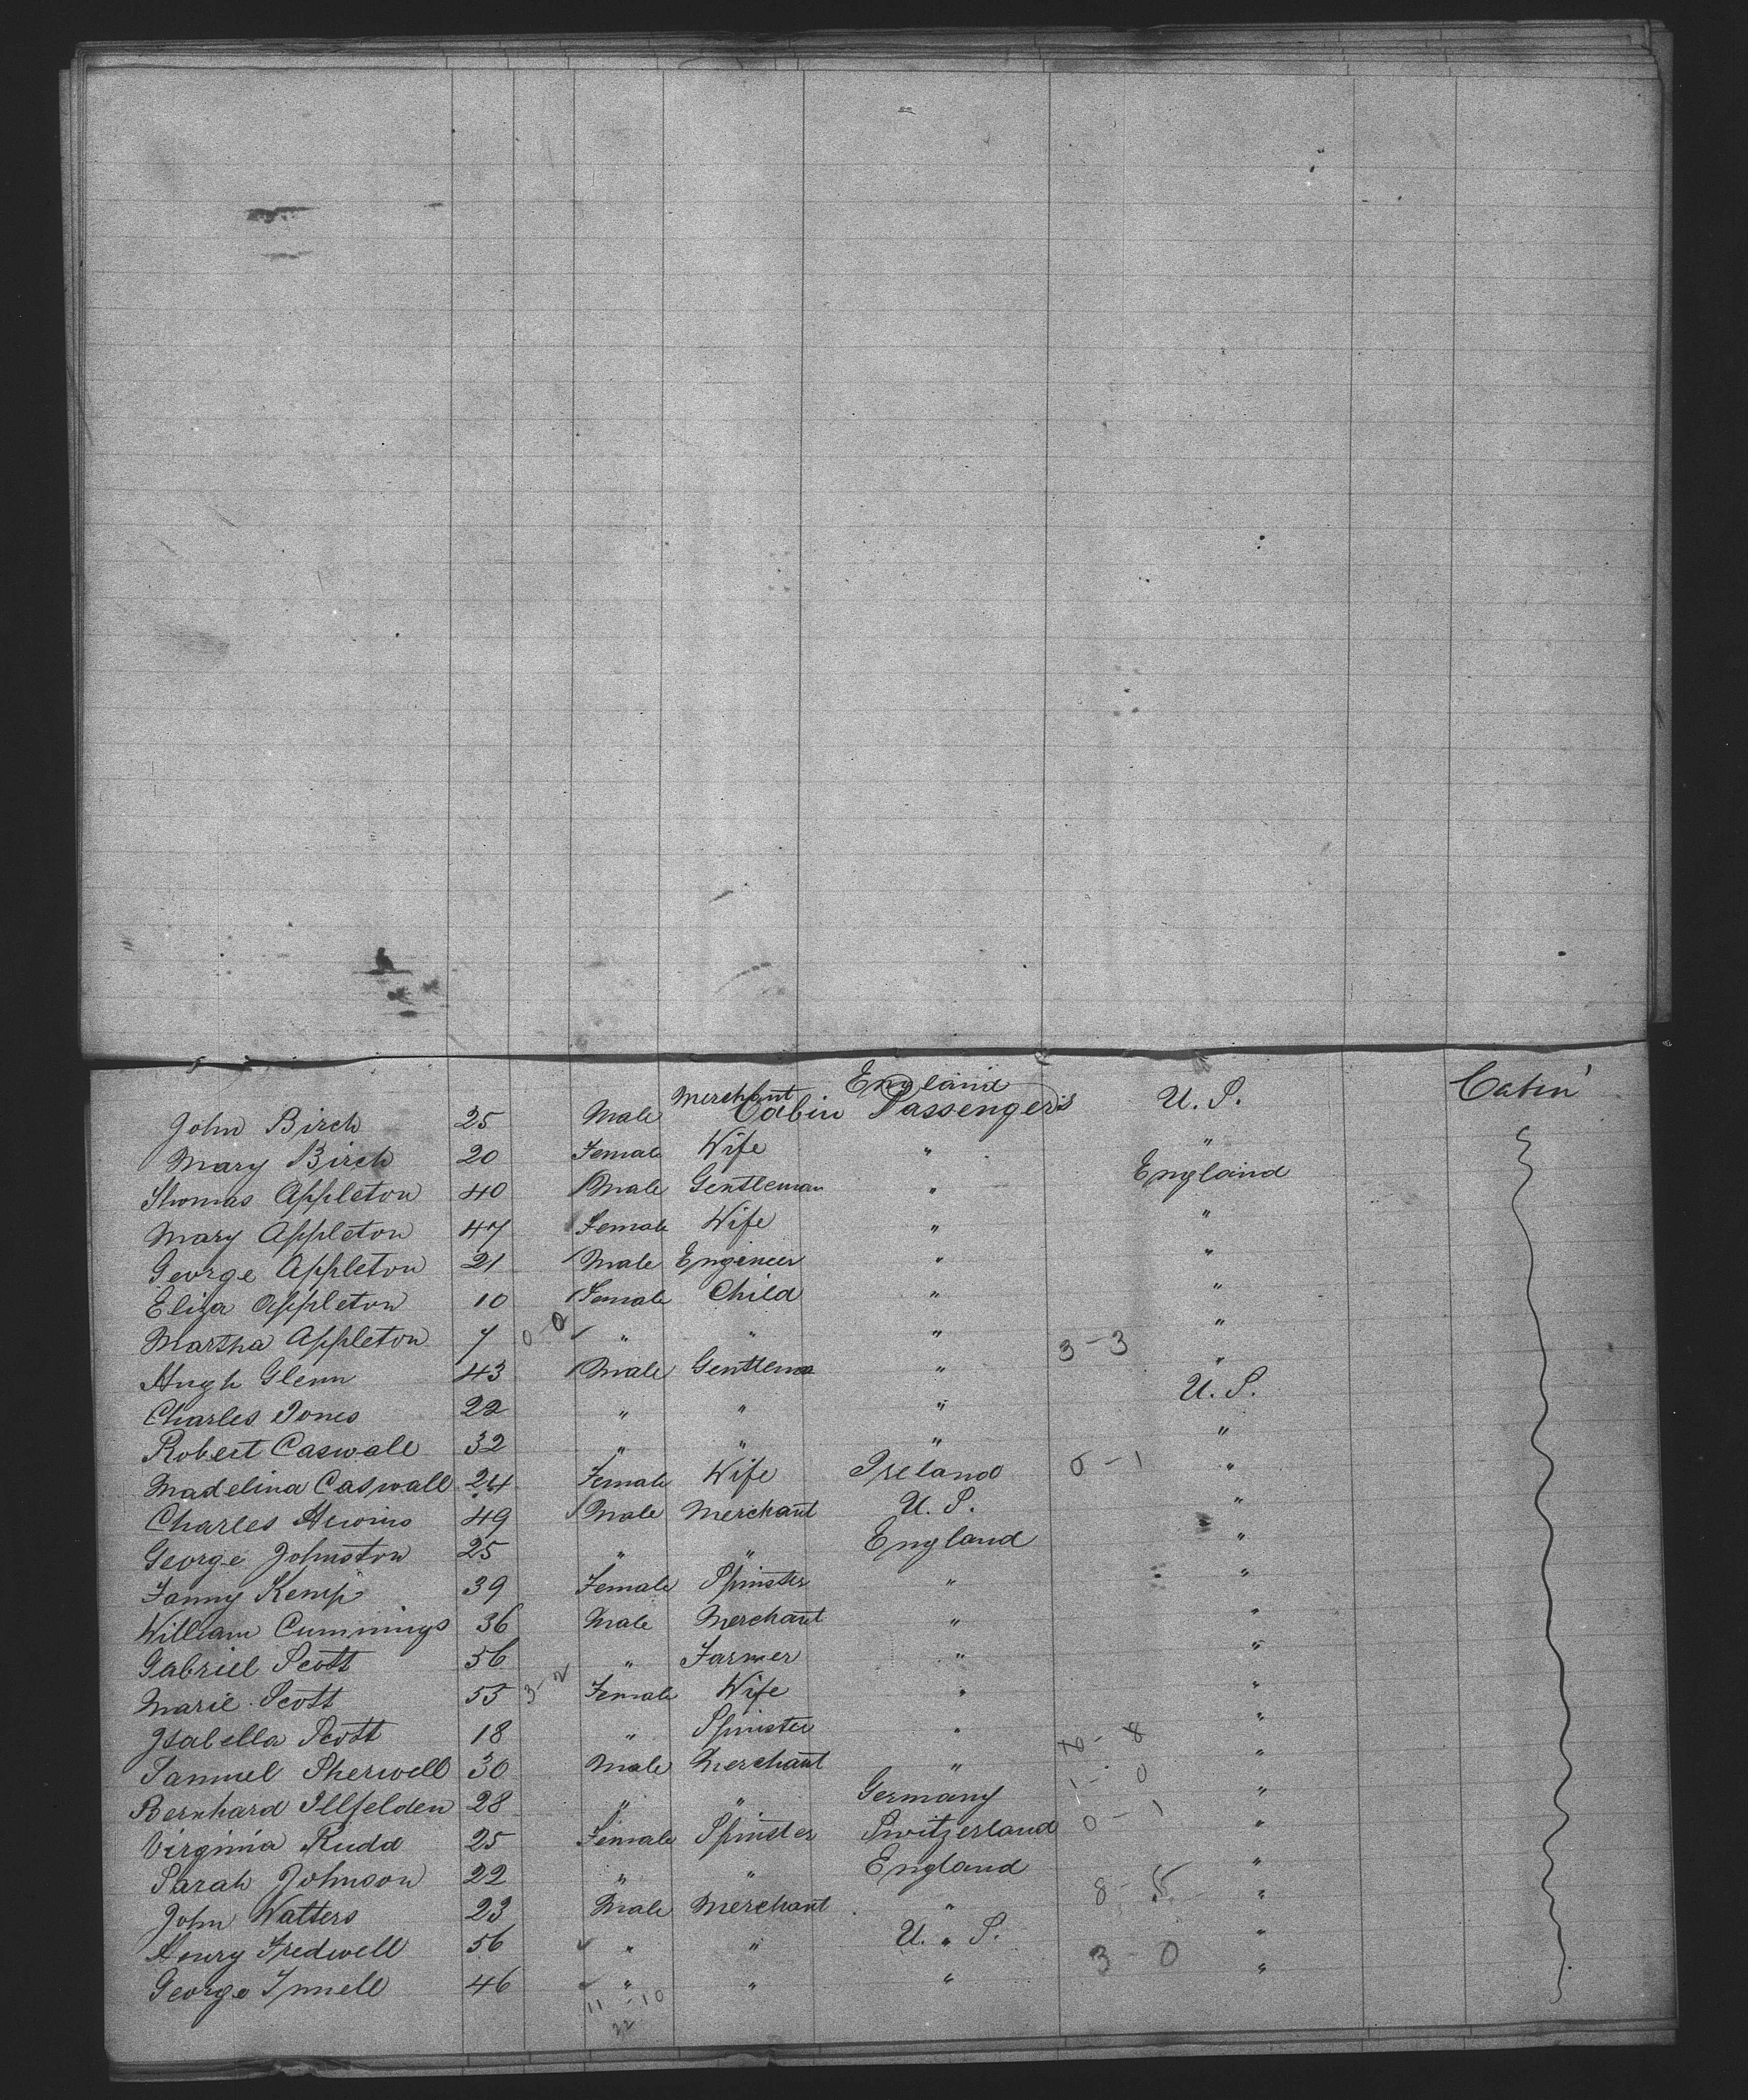 Cabin Passengers
John Birch 25 Male Merchant England U. S. Cabin
Mary Birch 20 Female Wife " "
Thomas Appleton 40 Male Gentleman " England
Mary Appleton 47 Female Wife " "
George Appleton 21 Male Engineer " "
Eliza Appleton 10 Female Child " "
Martha Appleton 7 0-2 " " " 3-3 "
Hugh Glenn 43 Male Gentleman " "
Charles Jones 22 " " " U. S.
Robert Caswall 32 " " " "
Madelina Caswall 24 Female Wife Ireland 0-1 "
Charles 49 Male Merchant U. S. "
George Johnston 25 " " England "
Fanny Kemp 39 Female Spinster " "
William Cummings 36 Male Merchant " "
Gabriel Scott 56 " Farmer " "
Marie Scott 55 3-2 Female Wife " "
Isabella Scott 18 " Spinster " "
Samuel Sherwell 30 Male Merchant " "
Bernhard Illfelden 28 " " Germany 1-0 "
Virginia Rudd 25 Female Spinster Switzerland 0-1 "
Sarah Johnson 22 " " England "
John Watters 23 Male Merchant " 8-5 "
Henry Tredwell 56 " " U. S. "
George 46 " " " 3-0 "
11-10
22